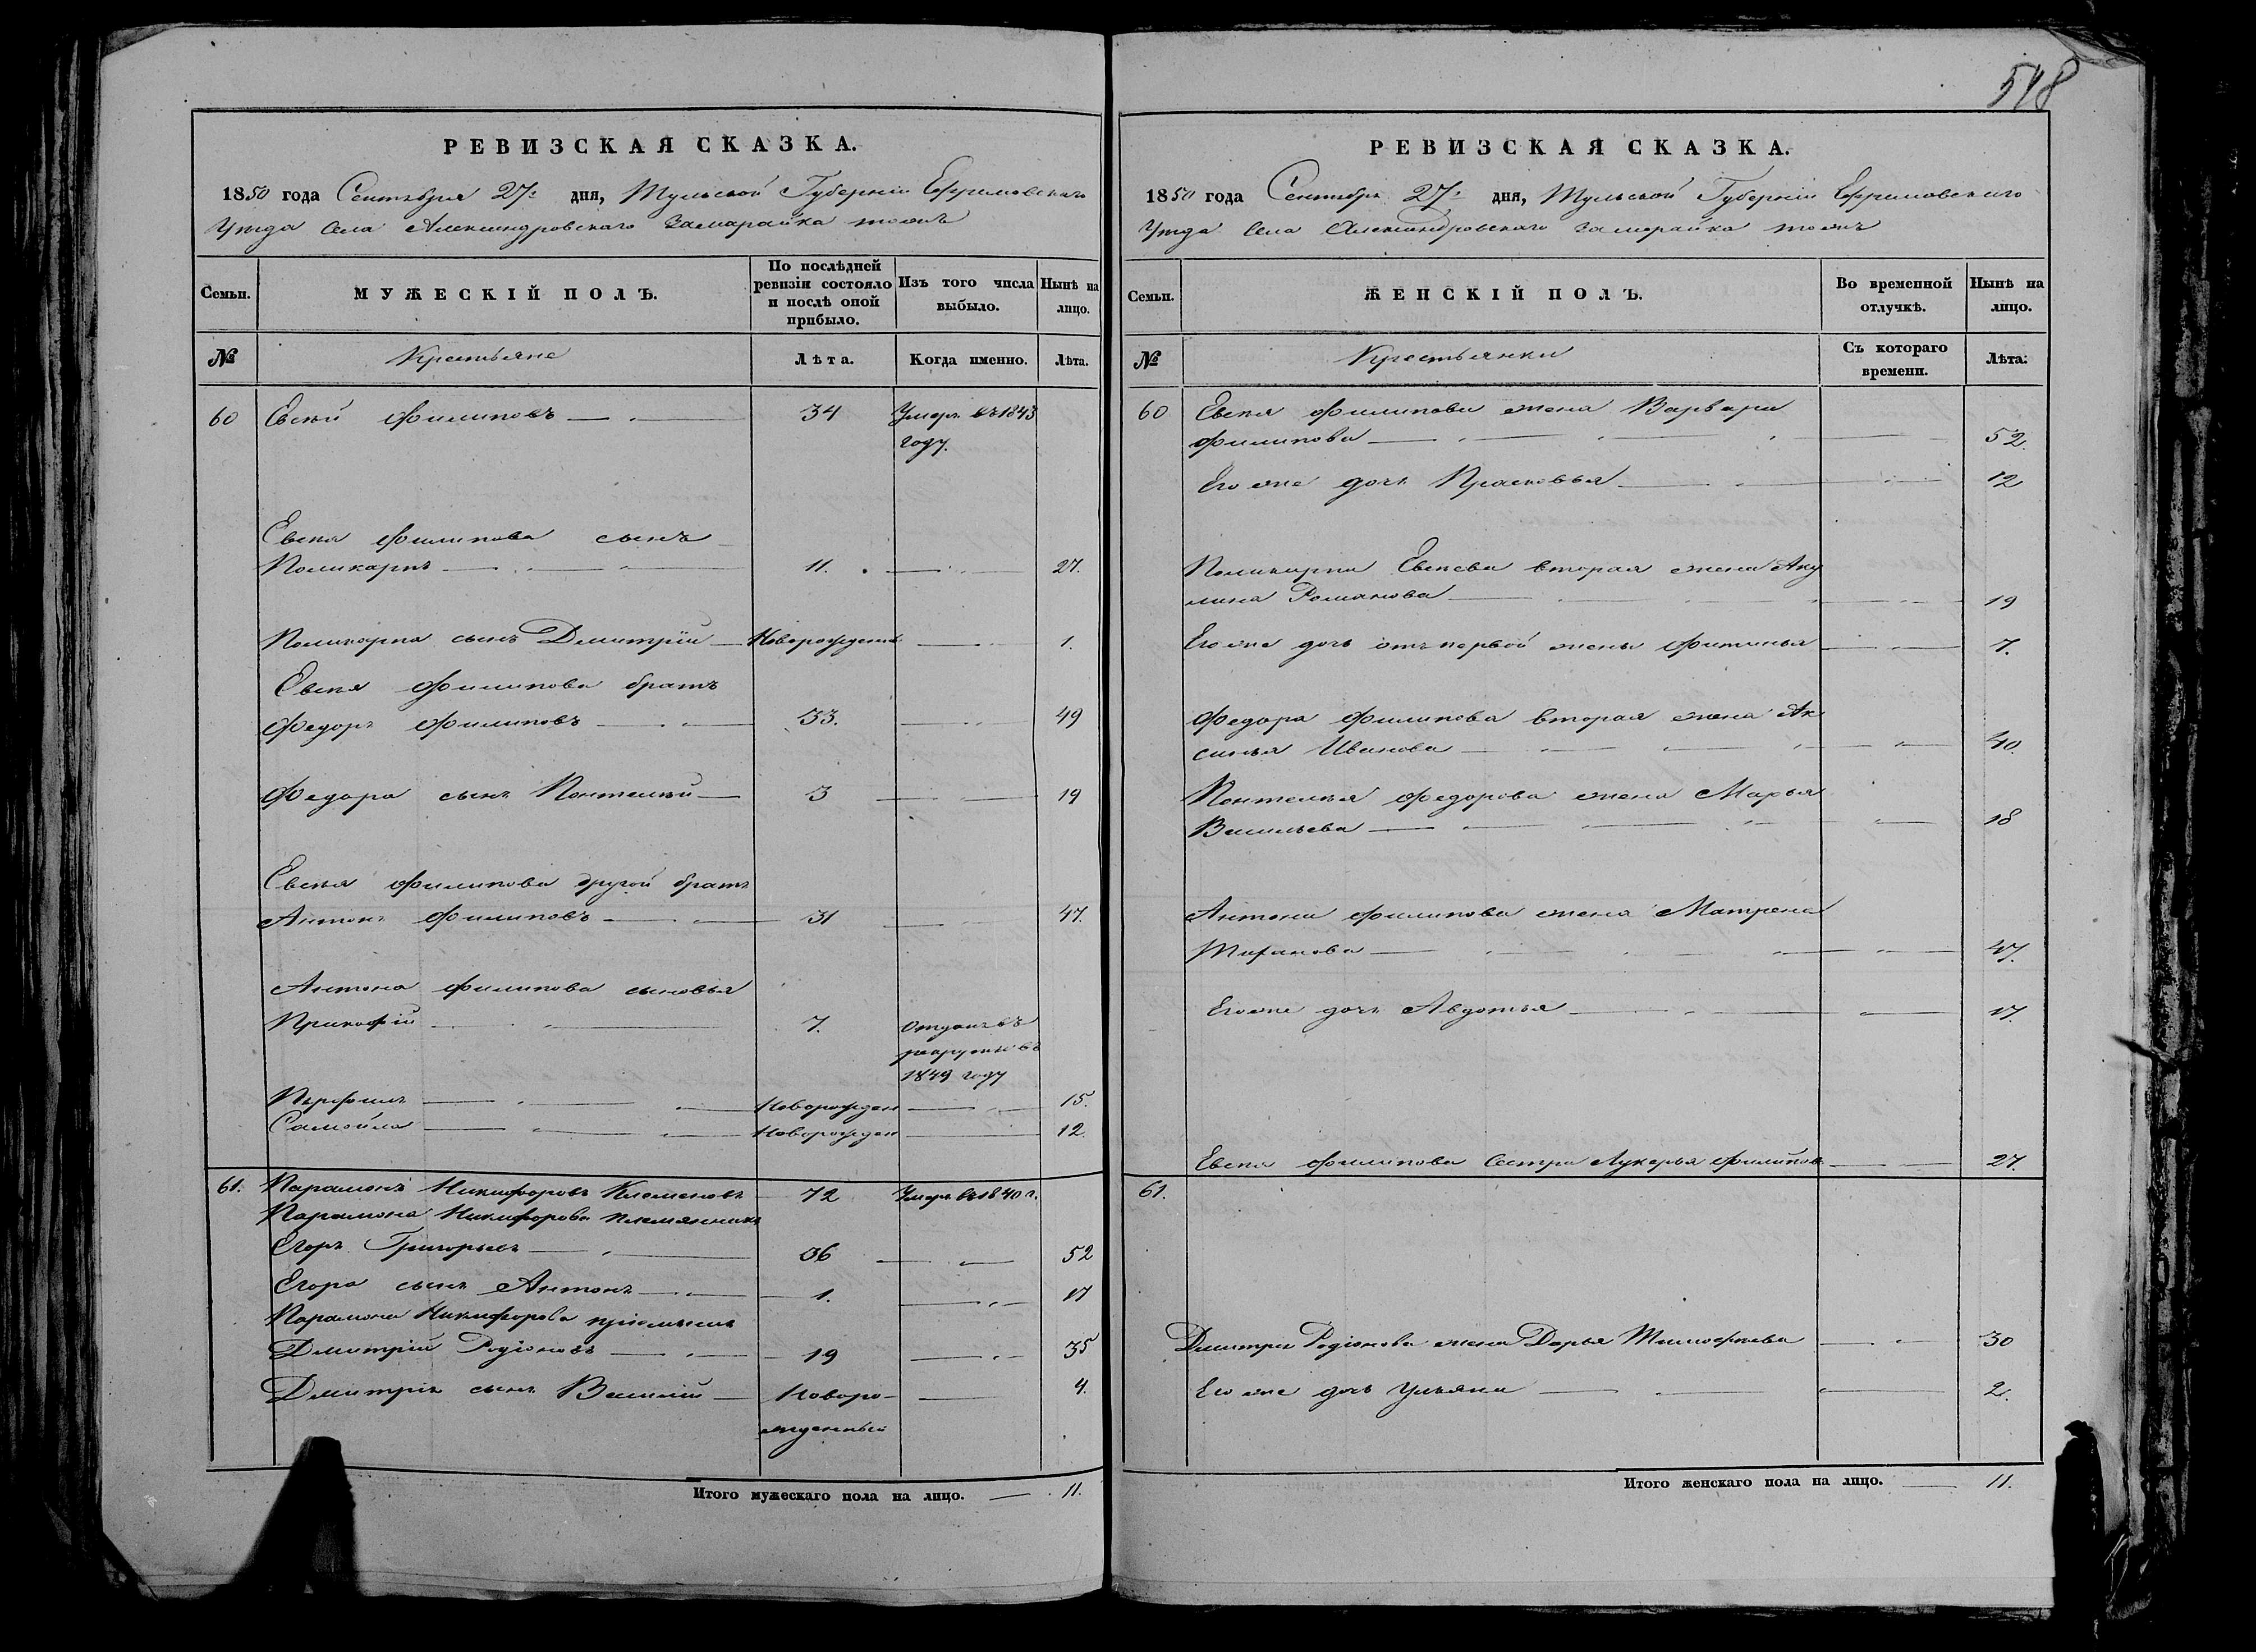 РЕВИЗСКАЯ СКАЗКА.
1850 года Сентября 27: дня, Тульской Губерніи Ефремовскаго
Уезда Села Александровскаго Замарайка тожъ
Семьи.
МУЖЕСКІЙ ПОЛЪ.
По послѣдней ревизіи состояло и послѣ оной прибыло.
Изъ того числа выбыло.
Нынѣ на лицо.
№
Крестьяне
Лѣта.
Когда именно.
Лѣта.
60 Евсѣй Филиповъ 34 Умеръ въ 1843
году.
Евсѣя Филипова сынъ
Поликарпъ 11. 27.
Поликарпа сынъ Дмитрій Новорожденъ 1.
Евсѣя Филипова братъ
Федоръ Филиповъ 33. 49
Федора сынъ Понтелѣй 3 19
Евсѣя Филипова другой братъ
Антонъ Филиповъ 31 47.
Антона Филипова сыновья
Прокофій 7. отданъ въ
рекруты въ
1849 году
Перфилъ Новорожден 15.
Самойла Новорожден 12.
61. Парамонъ Никифоровъ 72 Умеръ въ 1840 г.
Парамона Никифорова племянникъ
Егоръ Григорьевъ 36 52
Егора сынъ Антонъ 1. 17
Парамона Никифорова пріемышъ
Дмитрій Родіоновъ 19 35
Дмитрія сынъ Василій Новоро- 4.
жденный
Итого мужескаго пола на лицо. 11.
548
РЕВИЗСКАЯ СКАЗКА.
1850 года Сентября 27: дня, Тульской Губерніи Ефремовскаго
Уезда Села Александровскаго Замарайка тожъ
Семьи.
ЖЕНСКІЙ ПОЛЪ.
Во временной отлучкѣ.
Нынѣ на лицо.
№
Крестьянки
Съ котораго времени.
Лѣта.
60 Евсѣя Филипова жена Варвара
Филипова 52.
Его же дочь Прасковья 12
Поликарпа Евсеева вторая жена Аку
лина Романова 19
Его же дочь отъ первой жены Фитинья 7.
Федора Филипова вторая жена Ак
синья Иванова 40.
Понтелѣя Федорова жена Марья
Васильева 18
Антона Филипова жена Матрена
47.
Его же дочь Авдотья 17.
Евсѣя Филипова Сестра Лукерья Филипов 27.
61.
Дмитрія Родіонова жена Дарья Тимофѣева 30
Его же дочь Ульяна 2.
Итого женскаго пола на лицо. 11.